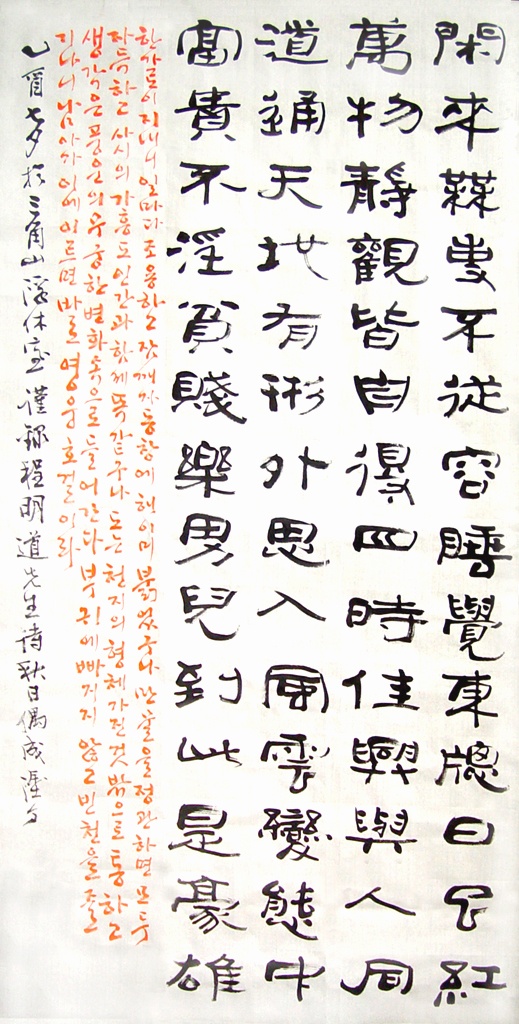 閑來橆事不從容睡覺東牕日已紅
萬物靜觀皆自得四時佳興與人同
道通天地有形外思入風雲變態中
富貴不淫貧賤樂男兒到此是豪雄
한가로이 지내니 일마다 조용하고 잠깨자 동창에 해 이미 붉었구나 만물을 정관하면 모두
자득하고 사시의 가흥도 인간과 함께 똑같구나 도는 천지의 형체가진 것 밖으로 통하고
생각은 풍운의 무궁한 변화속으로 들어간다 부귀에 빠지지 않고 빈천을 즐
기나니 남아가 이에 이르면 바로 영웅호걸이라
乙酉七夕於三角山浮休室謹錄程明道先生詩秋日偶成